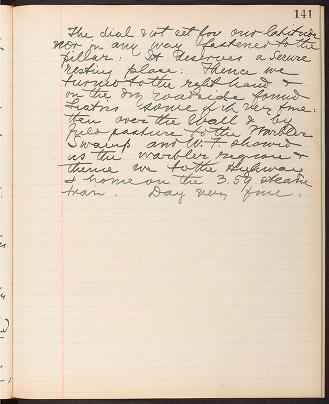 141
The dial not set for our latitude
nor in any way fastened to the
pillar. It deserves a secure
resting place. Thence we
turned to the right hand &
on the dry roadside found
Liatris some of it very fine.
then over the wall & by
field pasture to the Warbler
Swamp and W. F. showed
us the warbler region &
thence we to the Highway
& home on the 3.54 steam
train. Day very fine.